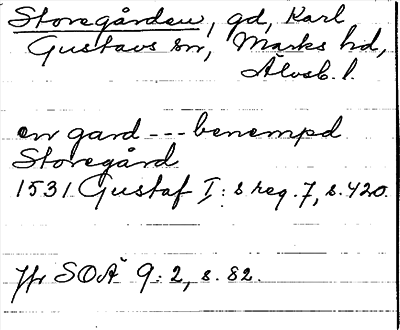 Storegården, gd, Karl
Gustavs sn, Marks hd,
Älvsb. l.
en gard --- benempd
Storegård
1531 Gustaf I:s reg. 7, s. 420.
Jfr SOÄ 9:2, s. 82.